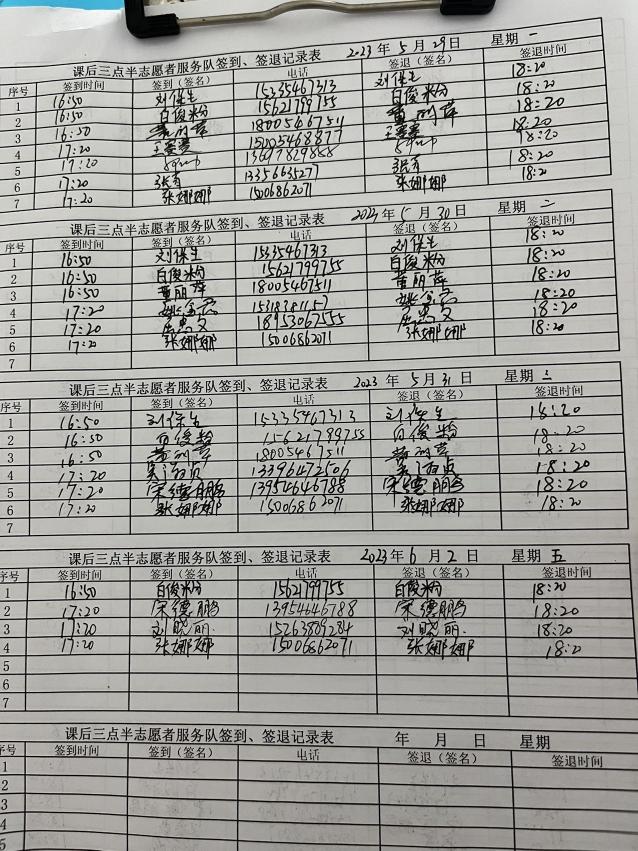 课后三点半志愿者服务队签到、签退记录表 2023 年 5 月 29 日 星期 一
序号 签到时间 签到（签名） 电话 签退（签名） 签退时间
1 16:50 刘保生 15335467313 刘保生 18:20
2 16:50 白俊粉 15621799755 白俊粉 18:20
3 16:50 黄丽萍 18005467511 黄丽萍 18:20
4 17:20 15005468877 18:20
5 17:20 13697829888 18:20
6 17:20 张青 13356635277 张青 18:20
7 17:20 张娜娜 15006862071 张娜娜 18:20
课后三点半志愿者服务队签到、签退记录表 2023 年 5 月 30 日 星期 二
序号 签到时间 签到（签名） 电话 签退（签名） 签退时间
1 16:50 刘保生 15335467313 刘保生 18:20
2 16:50 白俊粉 15621799755 白俊粉 18:20
3 16:50 黄丽萍 18005467511 黄丽萍 18:20
4 17:20 18:20
5 17:20 18953067555 18:20
6 17:20 张娜娜 15006862071 张娜娜 18:20
7
课后三点半志愿者服务队签到、签退记录表 2023 年 5 月 31 日 星期 三
序号 签到时间 签到（签名） 电话 签退（签名） 签退时间
1 16:50 刘保生 15335467313 刘保生 18:20
2 16:50 白俊粉 15621799755 白俊粉 18:20
3 16:50 黄丽萍 18005467511 黄丽萍 18:20
4 17:20 13396472506 18:20
5 17:20 宋德鹏 13954646788 宋德鹏 18:20
6 17:20 张娜娜 15006862071 张娜娜 18:20
7
课后三点半志愿者服务队签到、签退记录表 2023 年 6 月 2 日 星期 五
序号 签到时间 签到（签名） 电话 签退（签名） 签退时间
1 16:50 白俊粉 15621799755 白俊粉 18:20
2 17:20 宋德鹏 13954646788 宋德鹏 18:20
3 17:20 刘晓丽 15263809284 刘晓丽 18:20
4 17:20 张娜娜 15006862071 张娜娜 18:20
5
6
7
课后三点半志愿者服务队签到、签退记录表 年 月 日 星期
序号 签到时间 签到（签名） 电话 签退（签名） 签退时间
1
2
3
4
5